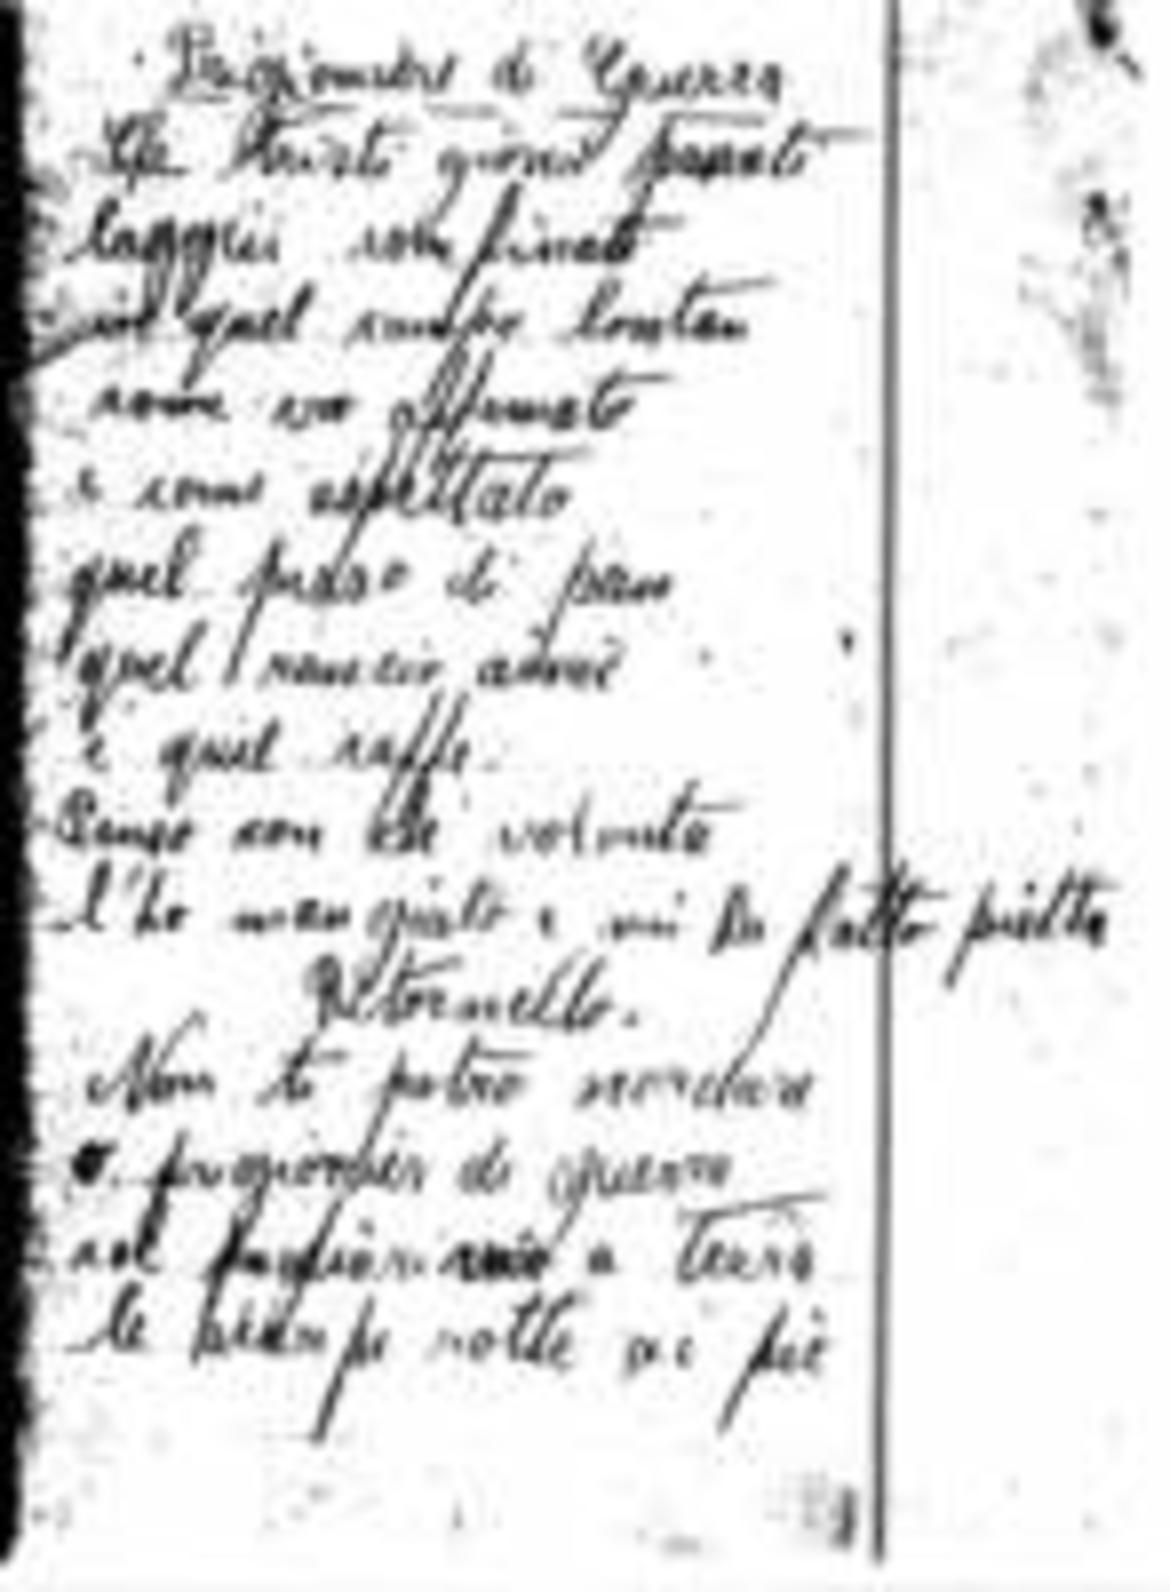 Prigioniero di Guerra
Che tristi giorni passati
laggiù confinato
in quel campo lontan
come ero affamato
e come aspettato
quel pezzo di pane
quel rancio aimè
e quel caffe.
Penso con che volontà
l'ho mangiato e mi ha fatto pietta
Ritornello.
Non ti potrò scordare
prigionier di guerra
col pagliericcio a terra
le scarpe rotte ai piè